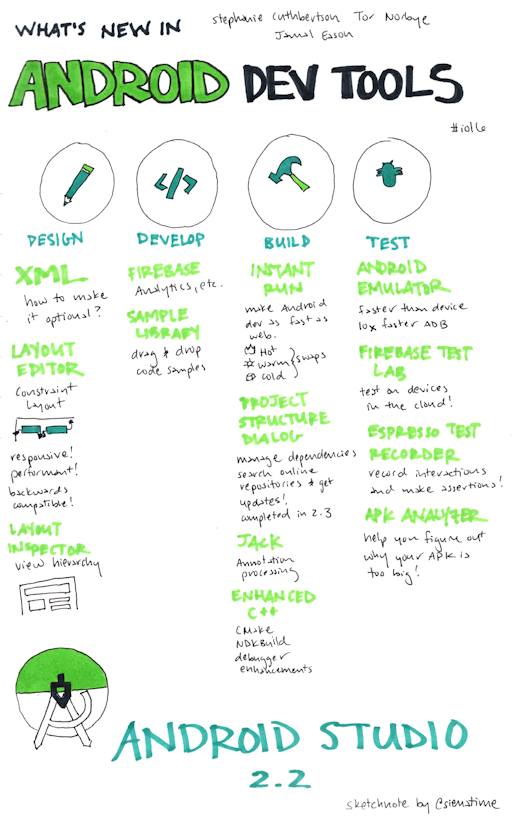 WHAT'S NEW IN
stephanie Cuthbertson Tor Norbye
Jamal Eason
ANDROID DEV TOOLS
#io16
DESIGN
XML
how to make
it optional?
LAYOUT
EDITOR
Constraint
layout
responsive!
performant!
backwards
compatible!
LAYOUT
INSPECTOR
view hierarchy
DEVELOP
FIREBASE
Analytics, etc.
SAMPLE
LIBRARY
drag & drop
code samples
BUILD
INSTANT
RUN
make Android
dev as fast as
web.
Hot
warm } swaps
cold
PROJECT
STRUCTURE
DIALOG
manage dependencies
search online
repositories & get
updates!
completed in 2.3
JACK
Annotation
processing
ENHANCED
C++
CMake
NDKBuild
debugger
enhancements
TEST
ANDROID
EMULATOR
faster than device
10x faster ADB
FIREBASE TEST
LAB
test on devices
in the cloud!
ESPRESSO TEST
RECORDER
record interactions
and make assertions!
APK ANALYZER
help you figure out
why your APK is
too big!
ANDROID STUDIO
2.2
sketchnote by @sienatime